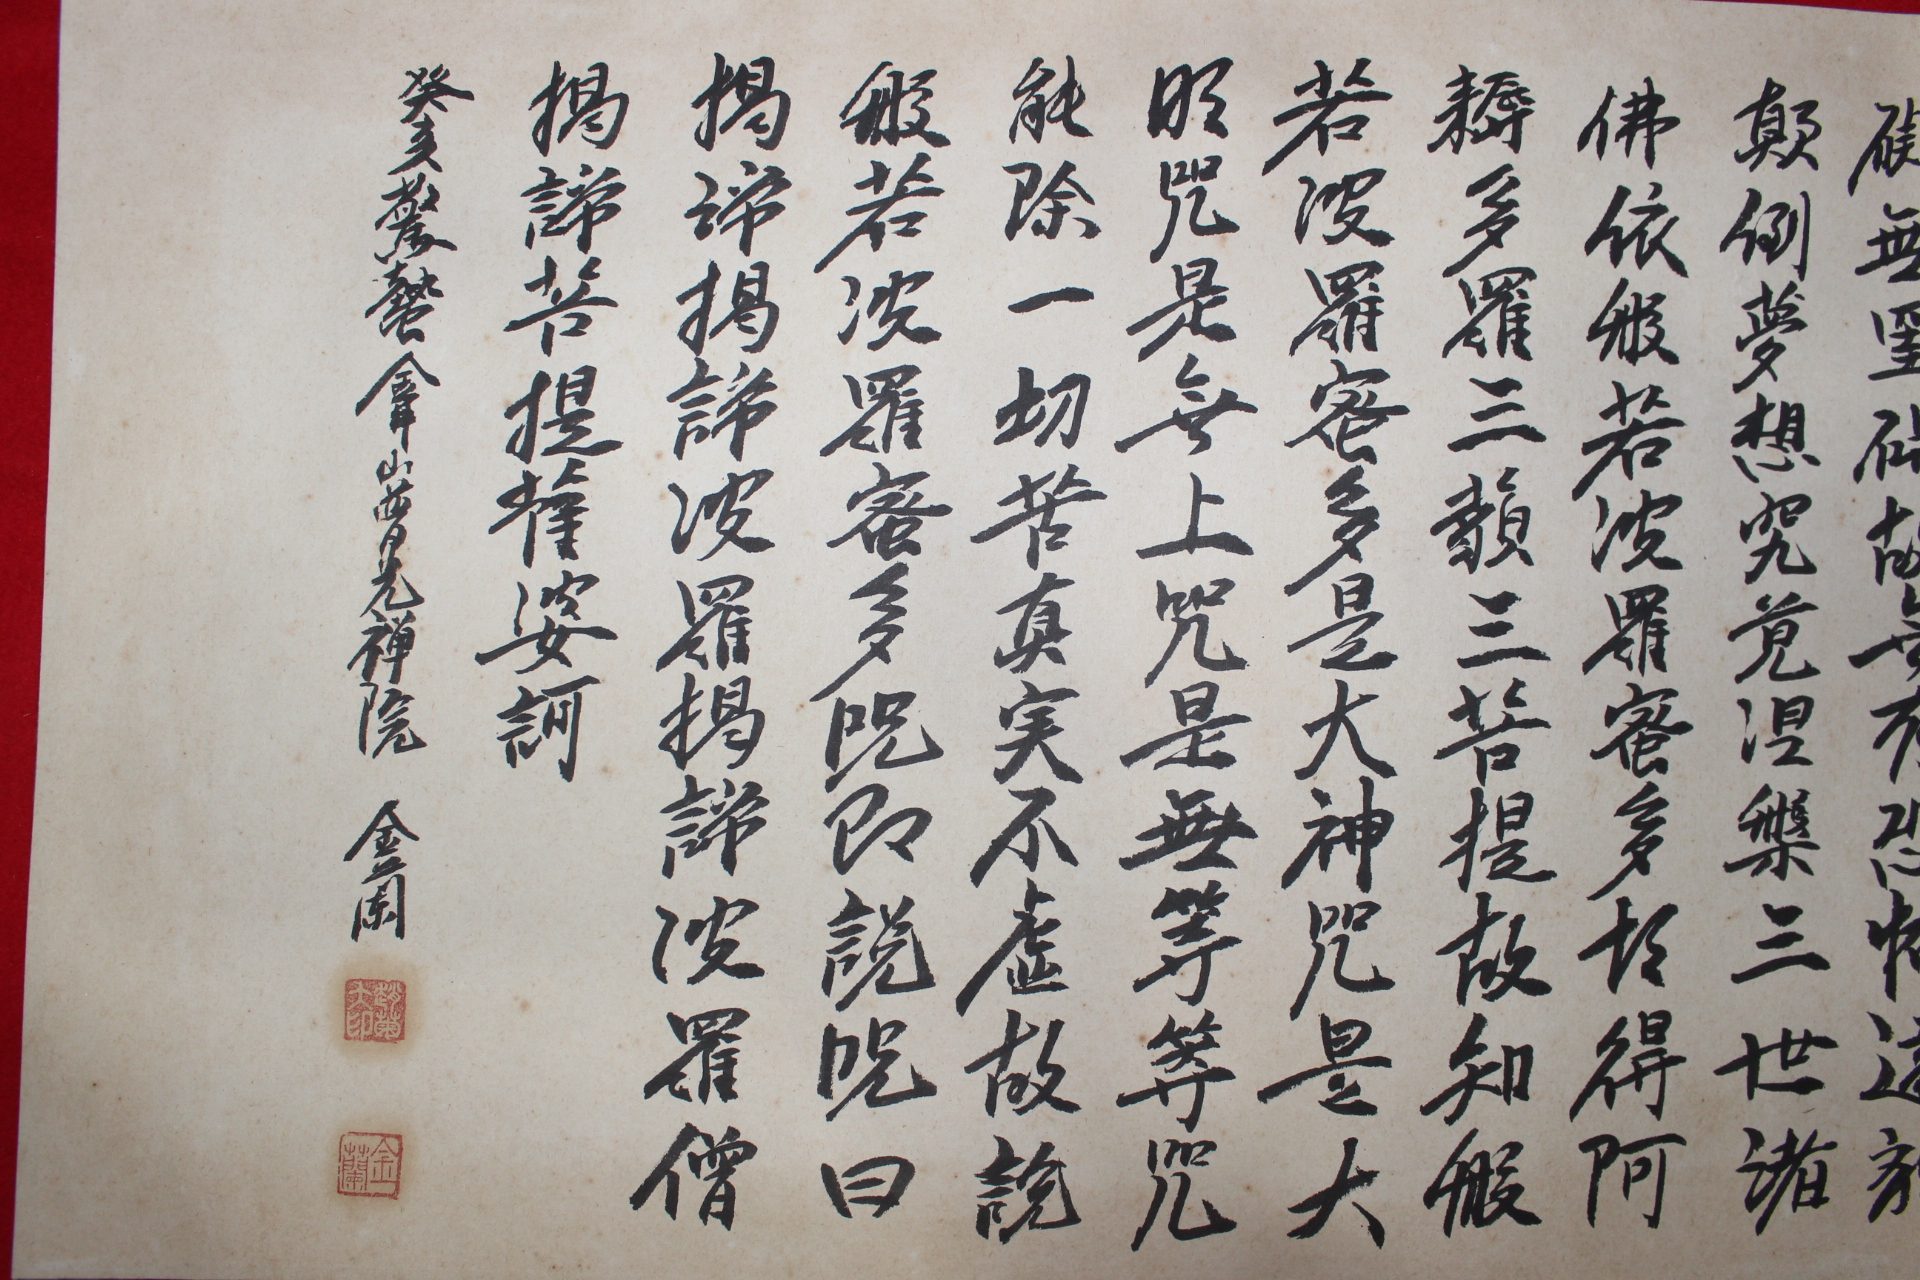 礙無罣礙故無有恐怖遠離
顛倒夢想究竟涅槃三世諸
佛依般若波羅蜜多故得阿
耨多羅三藐三菩提故知般
若波羅蜜多是大神咒是大
明咒是無上咒是無等等咒
能除一切苦真実不虛故說
般若波羅蜜多呪即説呪曰
揭諦揭諦波羅揭諦波羅僧
揭諦菩提薩婆訶
癸亥驚蟄 山普光禅院 金蘭
金蘭